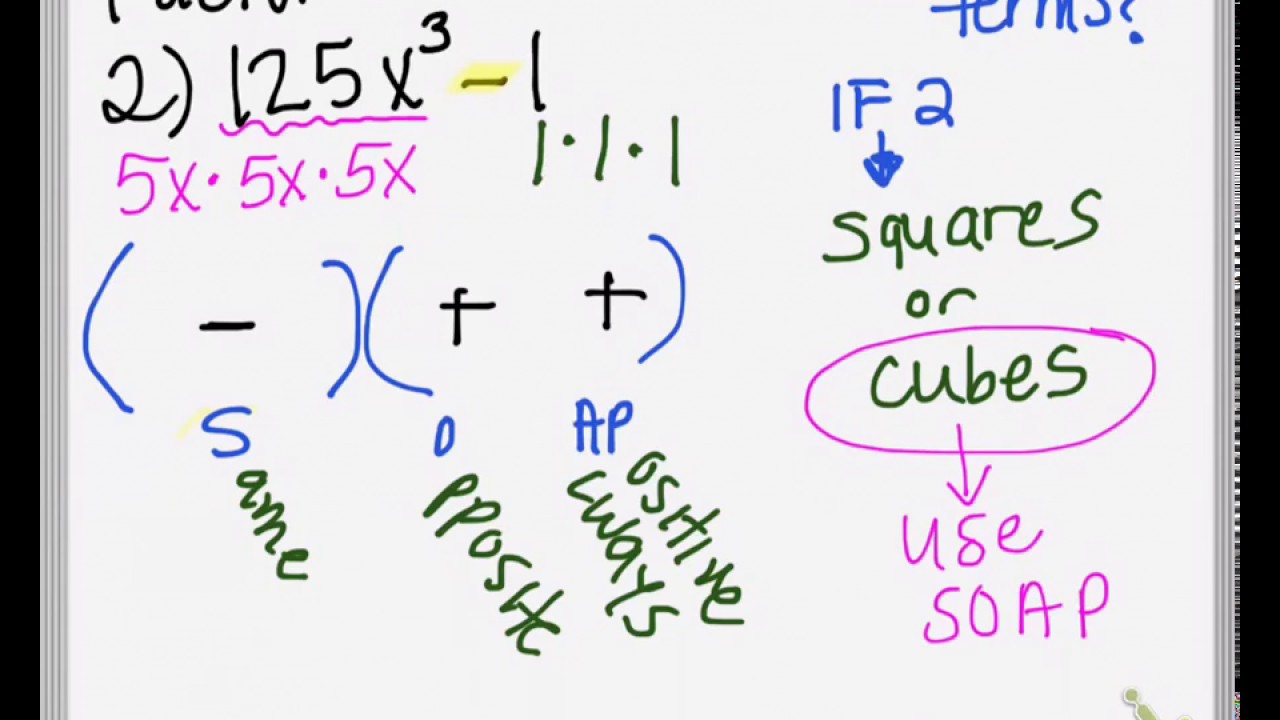 Factor
2) 125x³ - 1
5x · 5x · 5x 1 · 1 · 1
( - )( + + )
S O AP
Same Opposite Always Positive
terms?
IF 2
squares
or
cubes
use
SOAP